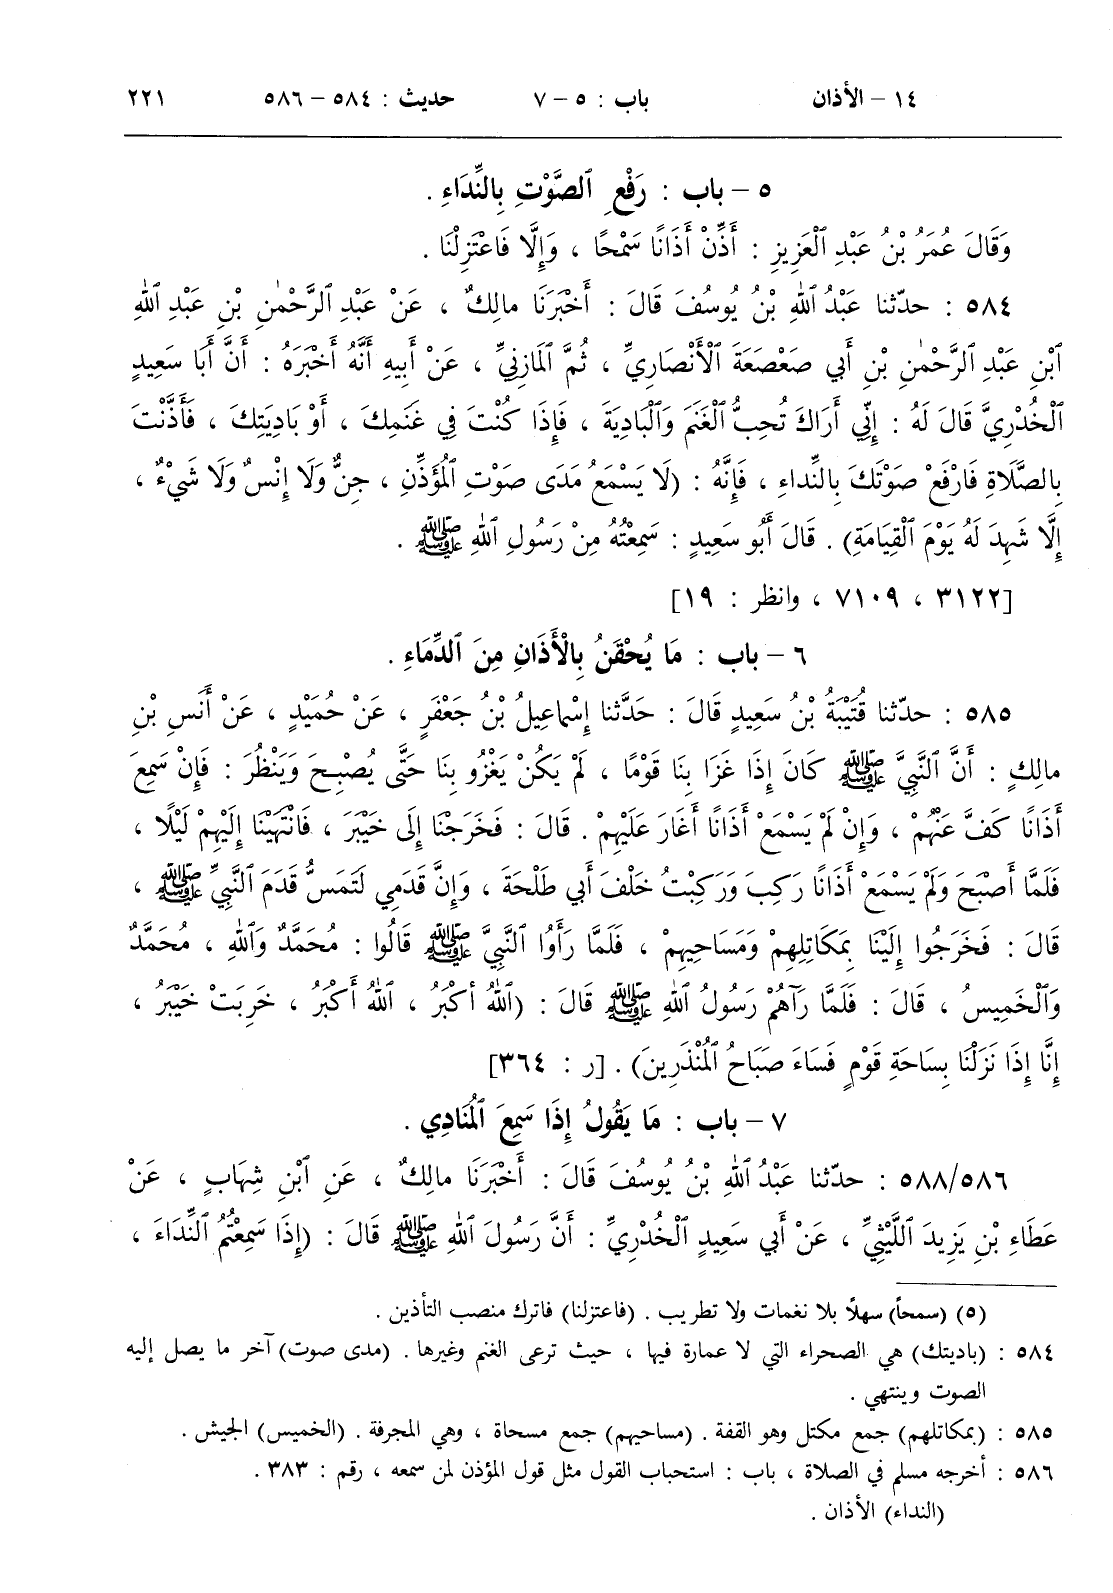 ١٤ – الأذان باب : ٥ – ٧ حديث : ٥٨٤ – ٥٨٦ ٢٢١
٥ – باب : رَفْعِ ٱلصَّوْتِ بِالنِّدَاءِ .
وَقَالَ عُمَرُ بْنُ عَبْدِ ٱلْعَزِيزِ : أَذِّنْ أَذَانًا سَمْحًا ، وَإِلَّا فَاعْتَزِلْنَا .
٥٨٤ : حدّثنا عَبْدُ ٱللهِ بْنُ يُوسُفَ قَالَ : أَخْبَرَنَا مالِكٌ ، عَنْ عَبْدِ ٱلرَّحْمٰنِ بْنِ عَبْدِ ٱللهِ
ٱبْنِ عَبْدِ ٱلرَّحْمٰنِ بْنِ أَبِي صَعْصَعَةَ ٱلْأَنْصَارِيِّ ، ثُمَّ ٱلْمَازِنِيِّ ، عَنْ أَبِيهِ أَنَّهُ أَخْبَرَهُ : أَنَّ أَبَا سَعِيدٍ
ٱلْخُدْرِيَّ قَالَ لَهُ : إِنِّي أَرَاكَ تُحِبُّ ٱلْغَنَمَ وَٱلْبَادِيَةَ ، فَإِذَا كُنْتَ فِي غَنَمِكَ ، أَوْ بَادِيَتِكَ ، فَأَذَّنْتَ
بِالصَّلَاةِ فَارْفَعْ صَوْتَكَ بِالنِّداءِ ، فَإِنَّهُ : (لَا يَسْمَعُ مَدَى صَوْتِ ٱلْمُؤَذِّنِ ، جِنٌّ وَلَا إِنْسٌ وَلَا شَيْءٌ ،
إِلَّا شَهِدَ لَهُ يَوْمَ ٱلْقِيَامَةِ) . قَالَ أَبُو سَعِيدٍ : سَمِعْتُهُ مِنْ رَسُولِ ٱللهِ ﷺ .
[٣١٢٢ ، ٧١٠٩ ، وانظر : ١٩]
٦ – باب : مَا يُحْقَنُ بِالْأَذَانِ مِنَ ٱلدِّمَاءِ .
٥٨٥ : حدّثنا قُتَيْبَةُ بْنُ سَعِيدٍ قَالَ : حَدَّثَنا إِسْماعِيلُ بْنُ جَعْفَرٍ ، عَنْ حُمَيْدٍ ، عَنْ أَنَسِ بْنِ
مالِكٍ : أَنَّ ٱلنَّبِيَّ ﷺ كَانَ إِذَا غَزَا بِنَا قَوْمًا ، لَمْ يَكُنْ يَغْزُو بِنَا حَتَّى يُصْبِحَ وَيَنْظُرَ : فَإِنْ سَمِعَ
أَذَانًا كَفَّ عَنْهُمْ ، وَإِنْ لَمْ يَسْمَعْ أَذَانًا أَغَارَ عَلَيْهِمْ . قَالَ : فَخَرَجْنَا إِلَى خَيْبَرَ ، فَانْتَهَيْنَا إِلَيْهِمْ لَيْلًا ،
فَلَمَّا أَصْبَحَ وَلَمْ يَسْمَعْ أَذَانًا رَكِبَ وَرَكِبْتُ خَلْفَ أَبِي طَلْحَةَ ، وَإِنَّ قَدَمِي لَتَمَسُّ قَدَمَ ٱلنَّبِيِّ ﷺ ،
قَالَ : فَخَرَجُوا إِلَيْنَا بِمَكَاتِلِهِمْ وَمَسَاحِيهِمْ ، فَلَمَّا رَأَوُا ٱلنَّبِيَّ ﷺ قَالُوا : مُحَمَّدٌ وَٱللهِ ، مُحَمَّدٌ
وَٱلْخَمِيسُ ، قَالَ : فَلَمَّا رَآهُمْ رَسُولُ ٱللهِ ﷺ قَالَ : (ٱللهُ أَكْبَرُ ، ٱللهُ أَكْبَرُ ، خَرِبَتْ خَيْبَرُ ،
إِنَّا إِذَا نَزَلْنَا بِسَاحَةِ قَوْمٍ فَسَاءَ صَبَاحُ ٱلْمُنْذَرِينَ) . [ر : ٣٦٤]
٧ – باب : مَا يَقُولُ إِذَا سَمِعَ ٱلْمُنَادِي .
٥٨٨/٥٨٦ : حدّثنا عَبْدُ ٱللهِ بْنُ يُوسُفَ قَالَ : أَخْبَرَنَا مالِكٌ ، عَنِ ٱبْنِ شِهَابٍ ، عَنْ
عَطَاءِ بْنِ يَزِيدَ ٱللَّيْثِيِّ ، عَنْ أَبِي سَعِيدٍ ٱلْخُدْرِيِّ : أَنَّ رَسُولَ ٱللهِ ﷺ قَالَ : (إِذَا سَمِعْتُمُ ٱلنِّدَاءَ ،
(٥) (سمحاً) سهلاً بلا نغمات ولا تطريب . (فاعتزلنا) فاترك منصب التأذين .
٥٨٤ : (باديتك) هي الصحراء التي لا عمارة فيها ، حيث ترعى الغنم وغيرها . (مدى صوت) آخر ما يصل إليه
الصوت وينتهي .
٥٨٥ : (بمكاتلهم) جمع مكتل وهو القفة . (مساحيهم) جمع مسحاة ، وهي المجرفة . (الخميس) الجيش .
٥٨٦ : أخرجه مسلم في الصلاة ، باب : استحباب القول مثل قول المؤذن لمن سمعه ، رقم : ٣٨٣ .
(النداء) الأذان .